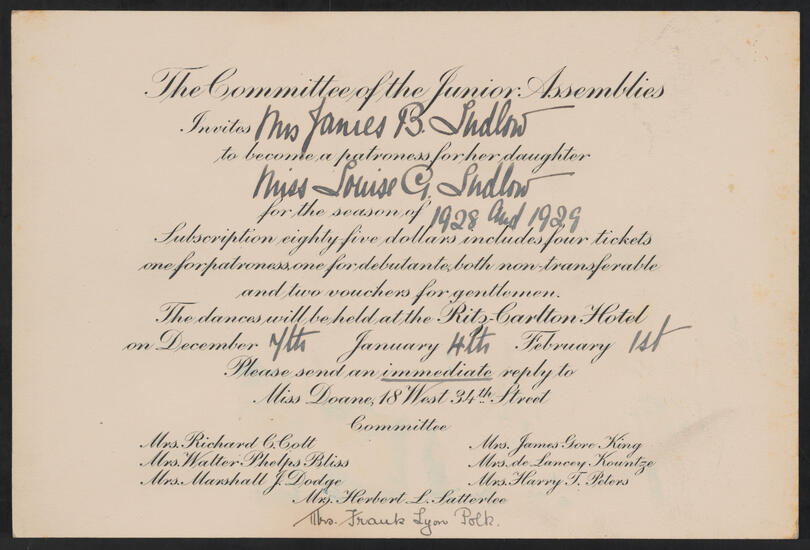 The Committee of the Junior Assemblies
Invites Mrs James B. Ludlow
to become a patroness for her daughter
Miss Louise G. Ludlow
for the season of 1928 and 1929
Subscription eighty-five dollars includes four tickets
one for patroness, one for debutante, both non-transferable
and two vouchers for gentlemen.
The dances will be held at the Ritz-Carlton Hotel
on December 7th January 4th February 1st
Please send an immediate reply to
Miss Doane, 18 West 34th Street
Committee
Mrs. Richard C. Colt
Mrs. James Gore King
Mrs. Walter Phelps Bliss
Mrs. de Lancey Kountze
Mrs. Marshall J. Dodge
Mrs. Harry T. Peters
Mrs. Herbert L. Satterlee
Mrs. Frank Lyon Polk.